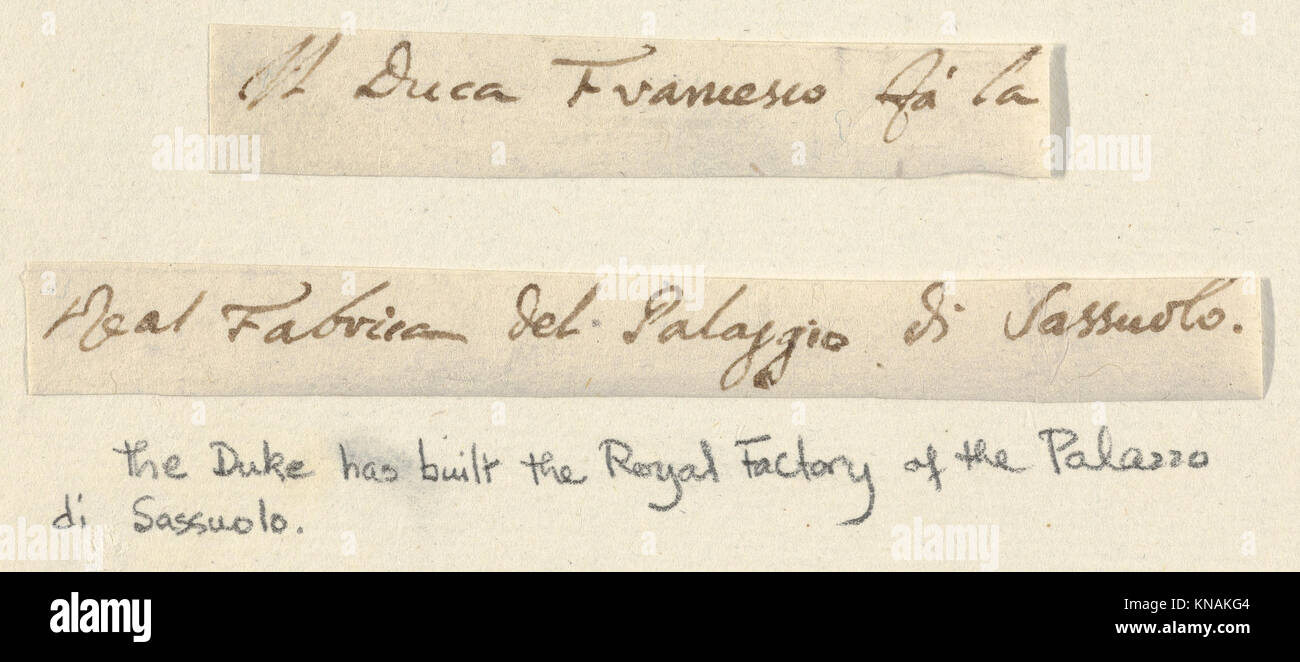 Il Duca Francesco fà la
Real Fabrica del Palaggio di Sassuolo.
the Duke has built the Royal Factory of the Palazzo
di Sassuolo.
alamy stock photo
alamy
Image ID: KNAKG4
www.alamy.com